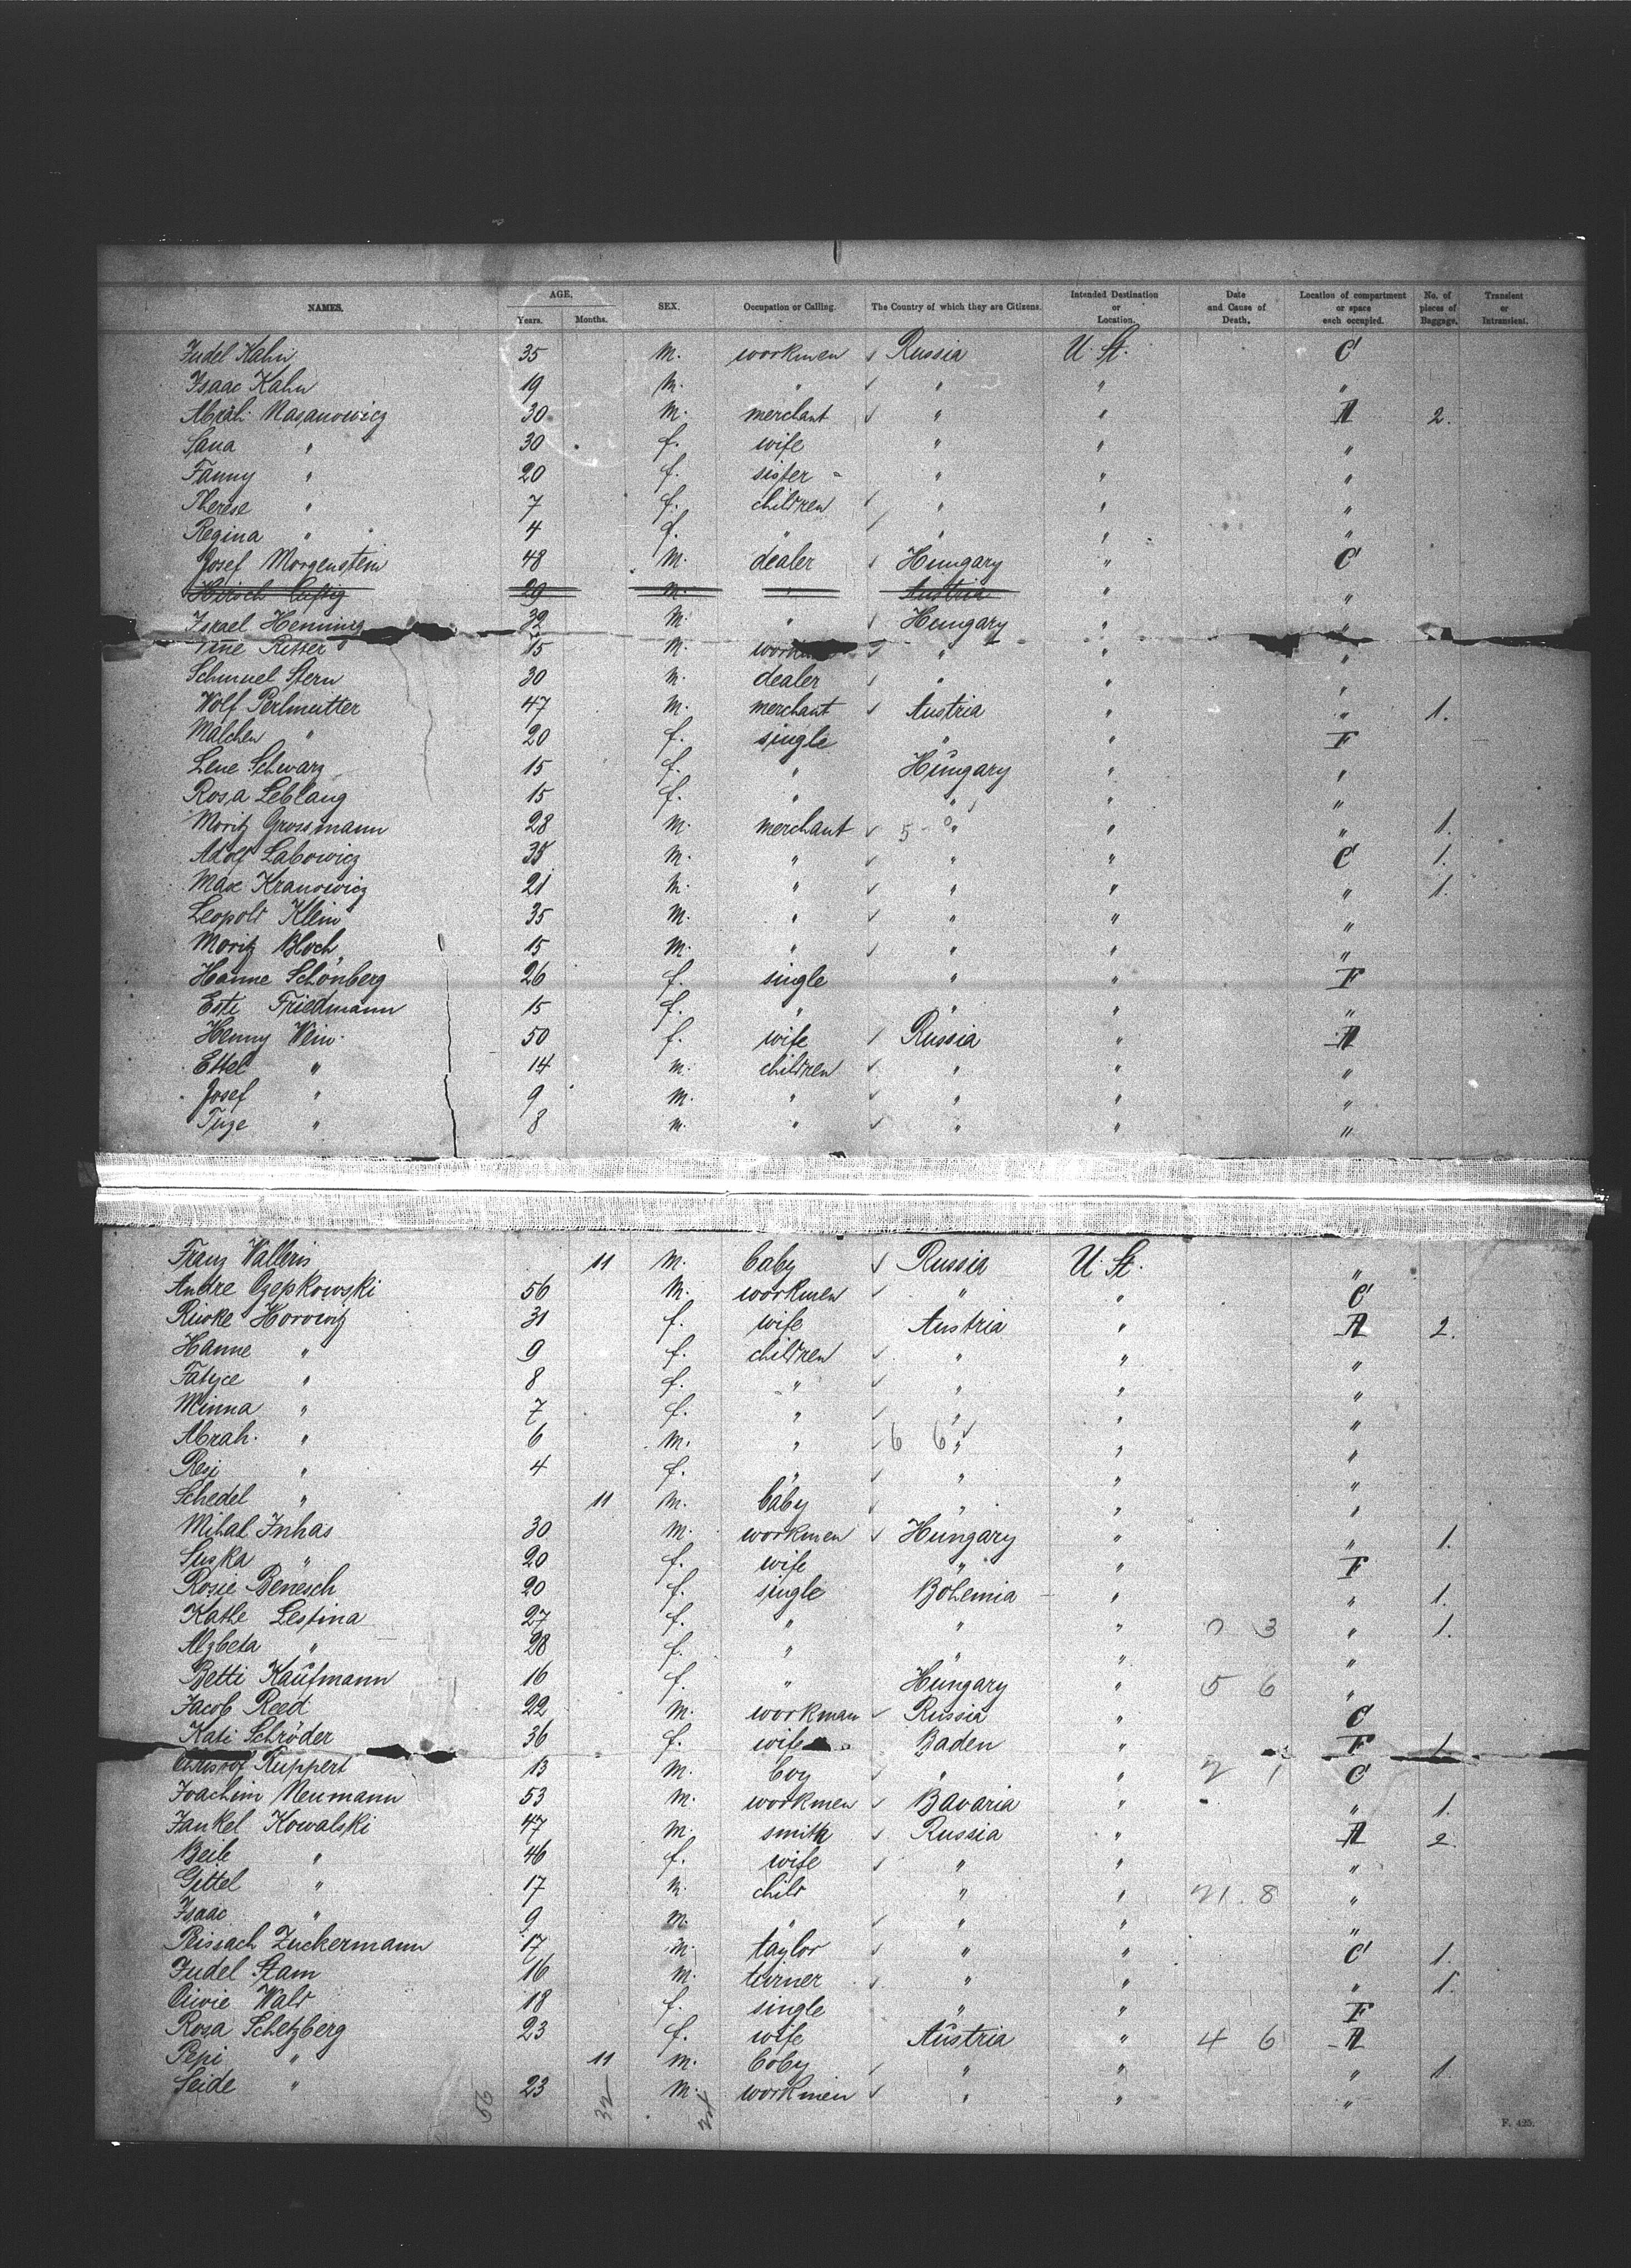 NAMES. AGE. Years. Months. SEX. Occupation or Calling. The Country of which they are Citizens. Intended Destination or Location. Date and Cause of Death. Location of compartment or space each occupied. No. of pieces of Baggage. Transient or Intransient.
Judel Kahn 35 m. workmen ✓ Russia U. St. C
Isaac Kahn 19 m. " ✓ " " "
Abrah. Nasanowicz 30 m. merchant ✓ " " A 2.
Sana " 30 f. wife " " "
Fanny " 20 f. sister " " "
Therese " 7 f. children ✓ " " "
Regina " 4 f. " ✓ " " "
Josef Morgenstein 48 m. dealer ✓ Hungary " C
Hirsch Lustig 29 m. " Austria " "
Israel Henning 32 m. " ✓ Hungary " "
Ritter 15 m. ✓ " " "
Schmuel Stern 30 m. dealer ✓ " " "
Wolf Perlmutter 47 m. merchant ✓ Austria " " 1.
Malchen " 20 f. single " " F
Lene Schwarz 15 f. " Hungary " "
Rosa Leblang 15 f. " " " "
Moritz Grossmann 28 m. merchant ✓ 5 - 0 " " " 1.
Adolf Labowicz 35 m. " ✓ " " C 1.
Max Kranowicz 21 m. " ✓ " " " 1.
Leopold Klein 35 m. " ✓ " " "
Moritz Bloch 15 m. " ✓ " " "
Hanne Schönberg 26 f. single " " F
Esti Friedmann 15 f. " " " "
Henny Wein 50 f. wife ✓ Russia " A
Ettel " 14 m. children ✓ " " "
Josef " 9 m. " ✓ " " "
Tuze " 8 m. " ✓ " " "
Franz Walleris 11 m. baby ✓ Russia U. St. "
Andre Czepkowski 56 m. workmen ✓ " " C
Riwke Horowitz 31 f. wife Austria " A 2.
Hanne " 9 f. children ✓ " " "
" 8 f. " ✓ " " "
Minna " 7 f. " ✓ " " "
Abrah. " 6 m. " ✓ 6 6 " " "
Resi " 4 f. " ✓ " " "
Schedel " 11 m. baby ✓ " " "
Mihal Inhas 30 m. workmen ✓ Hungary " " 1.
Suska " 20 f. wife " " F
Rosie Benesch 20 f. single Bohemia " " 1.
Kathe Lestina 27 f. " " " 3 " 1.
Alzbeta " 28 f. " " " "
Betti Kaufmann 16 f. " Hungary " 5 6 "
Jacob Reed 22 m. workman ✓ Russia " C
Kati Schröder 36 f. wife Baden " F 1
Christof Ruppert 13 m. boy ✓ " " 2 1 C
Joachim Neumann 53 m. workmen ✓ Bavaria " " 1.
Jankel Kowalski 47 m. smith ✓ Russia " A 2.
Beile " 46 f. wife ✓ " " "
Gittel " 17 m. child " " 21.8 "
Isaac " 9 m. " ✓ " " "
Peissach Zuckermann 17 m. taylor ✓ " " C 1.
Judel Stam 16 m. turner ✓ " " " 1.
Wald 18 f. single " " F
Rosa Schetzberg 23 f. wife Austria " 4 6 A
Pepi " 11 m. baby ✓ " " " 1.
Seide " 23 m. workmen ✓ " " "
56 32
F. 425.